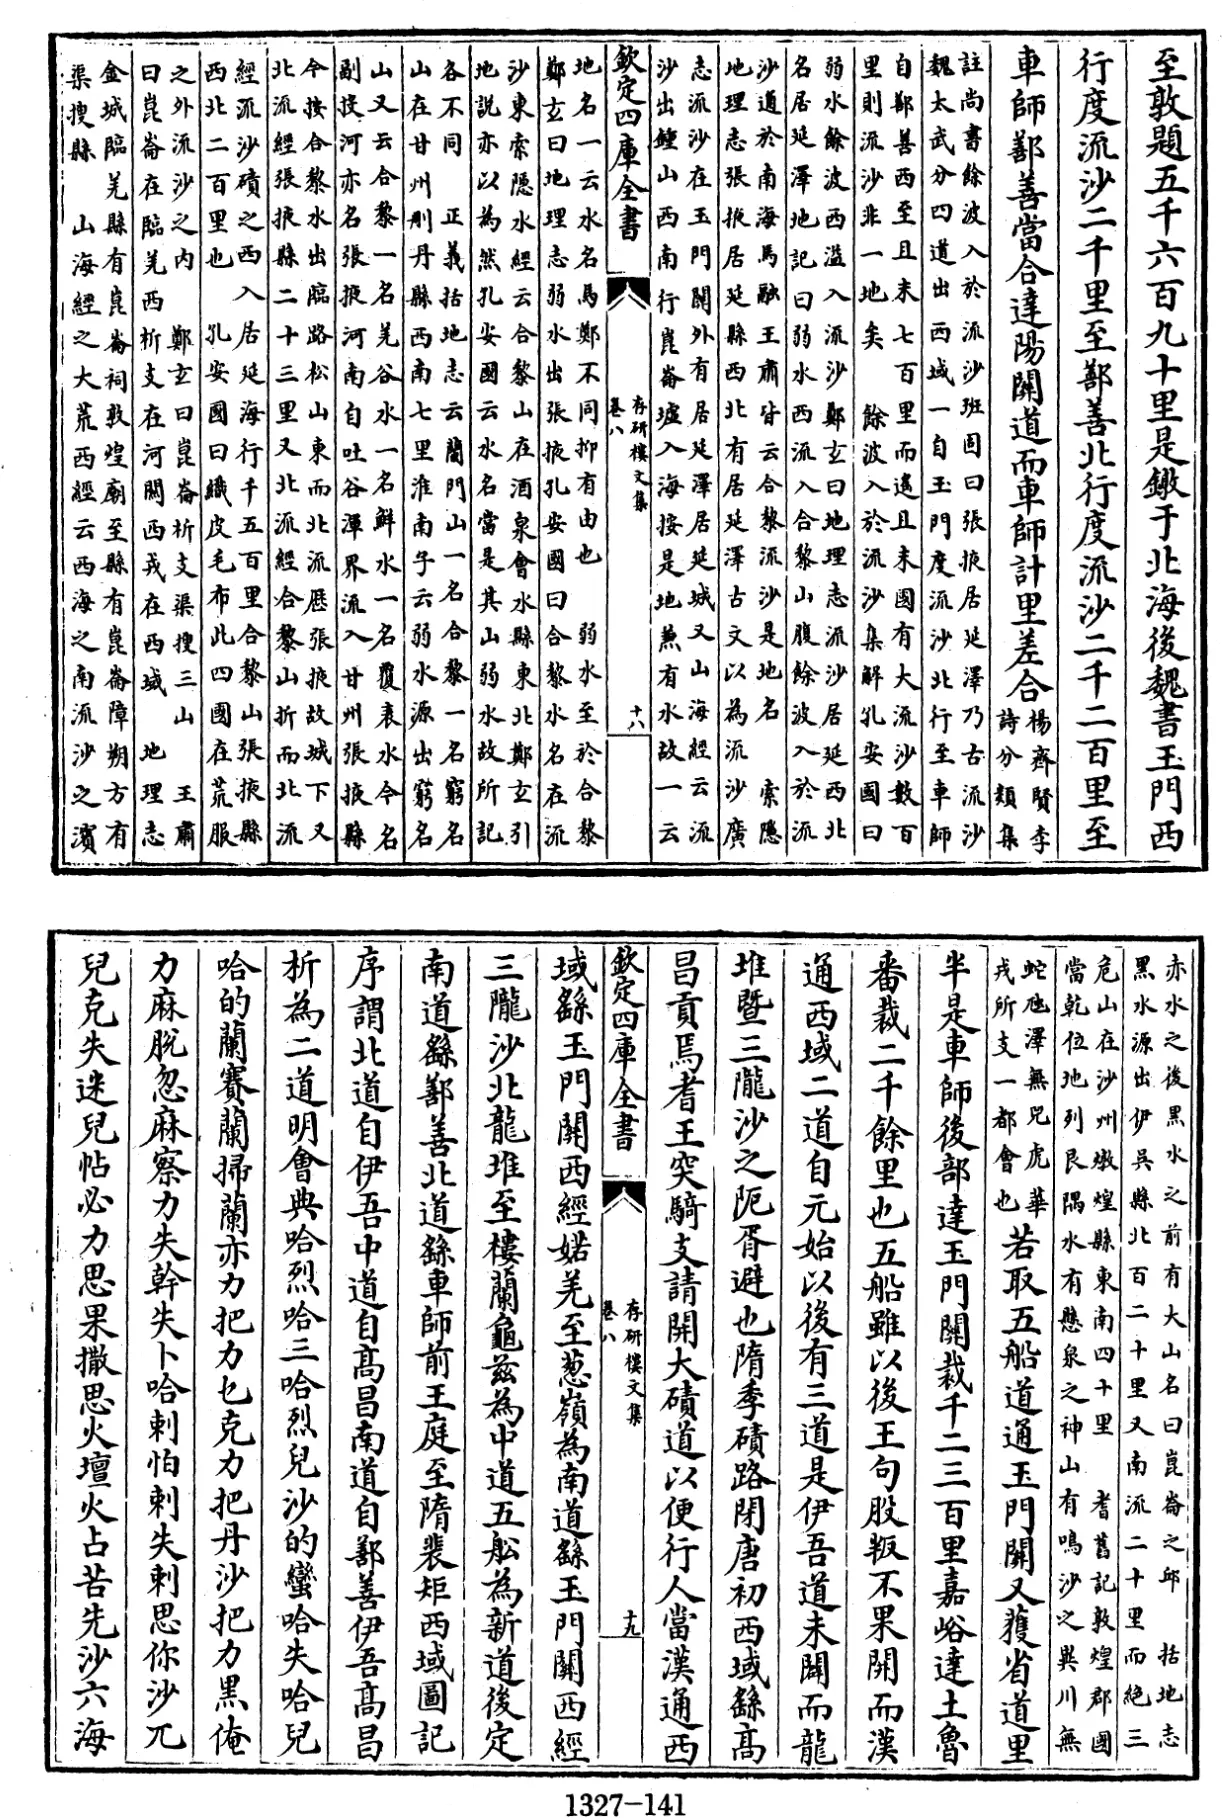 至敦題五千六百九十里是鐓于北海後魏書玉門西
行度流沙二千里至鄯善北行度流沙二千二百里至
車師鄯善當合達陽關道而車師計里差合楊齊賢李
詩分類集
註尚書餘波入於流沙班固曰張掖居延澤乃古流沙
魏太武分四道出西域一自玉門度流沙北行至車師
自鄯善西至且末七百里而遙且末國有大流沙數百
里則流沙非一地矣 餘波入於流沙集解孔安國曰
弱水餘波西溢入流沙鄭玄曰地理志流沙居延西北
名居延澤地記曰弱水西流入合黎山腹餘波入於流
沙通於南海馬融王肅皆云合黎流沙是地名 索隱
地理志張掖居延縣西北有居延澤古文以為流沙廣
志流沙在玉門關外有居延澤居延城又山海經云流
沙出鍾山西南行崑崙墟入海按是地兼有水故一云
欽定四庫全書
存研樓文集
卷八
十八
地名一云水名馬鄭不同抑有由也 弱水至於合黎
鄭玄曰地理志弱水出張掖孔安國曰合黎水名在流
沙東索隱水經云合黎山在酒泉會水縣東北鄭玄引
地說亦以為然孔安國云水名當是其山弱水故所記
各不同 正義括地志云蘭門山一名合黎一名窮名
山在甘州刪丹縣西南七里淮南子云弱水源出窮名
山又云合黎一名羌谷水一名鮮水一名覆袁水今名
副投河亦名張掖河南自吐谷渾界流入甘州張掖縣
今按合黎水出臨路松山東而北流歷張掖故城下又
北流經張掖縣二十三里又北流經合黎山折而北流
經流沙磧之西入居延海行千五百里合黎山張掖縣
西北二百里也 孔安國曰織皮毛布此四國在荒服
之外流沙之內 鄭玄曰崑崙析支渠搜三山 王肅
曰崑崙在臨羌西析支在河關西戎在西域 地理志
金城臨羌縣有崑崙祠敦煌廟至縣有崑崙障朔方有
渠搜縣 山海經之大荒西經云西海之南流沙之濱
赤水之後黑水之前有大山名曰崑崙之邱 括地志
黑水源出伊吳縣北百二十里又南流二十里而絕三
危山在沙州燉煌縣東南四十里 耆舊記敦煌郡國
當乾位地列艮隅水有懸泉之神山有鳴沙之異川無
蛇虺澤無兕虎華
戎所支一都會也若取五船道通玉門關又獲省道里
半是車師後部達玉門關裁千二三百里嘉峪達土魯
番裁二千餘里也五船雖以後王句股叛不果開而漢
通西域二道自元始以後有三道是伊吾道未闢而龍
堆暨三隴沙之阨胥避也隋季磧路閉唐初西域繇高
昌貢焉耆王突騎支請開大磧道以便行人當漢通西
欽定四庫全書
存研樓文集
卷八
十九
域繇玉門關西經婼羌至葱嶺為南道繇玉門關西經
三隴沙北龍堆至樓蘭龜茲為中道五船為新道後定
南道繇鄯善北道繇車師前王庭至隋裴矩西域圖記
序謂北道自伊吾中道自高昌南道自鄯善伊吾高昌
析為二道明會典哈烈哈三哈烈兒沙的蠻哈失哈兒
哈的蘭賽蘭掃蘭亦力把力乜克力把丹沙把力黑俺
力麻脫忽麻察力失幹失卜哈剌怕剌失剌思你沙兀
兒克失迷兒帖必力思果撒思火壇火占苦先沙六海
1327-141